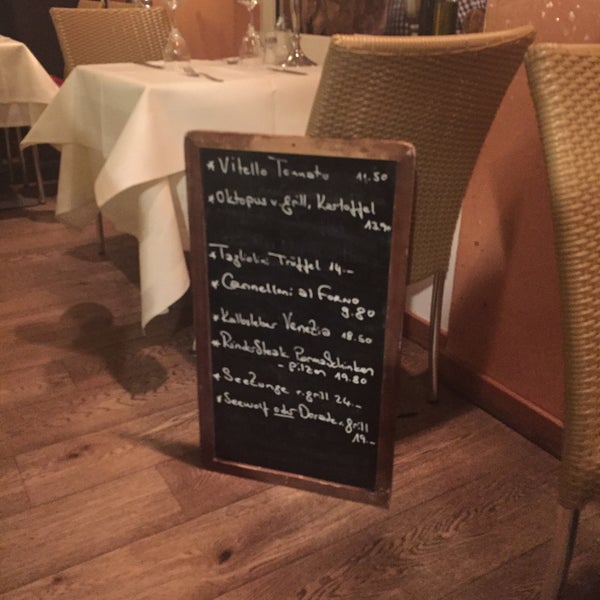 * Vitello Tonnato 11.50
* Oktopus v. grill, Kartoffel
13.90
* Tagliolini Trüffel 14.-
* Cannelloni al Forno
9.80
* Kalbsleber Venezia 18.50
* Rindersteak Parmaschinken
- pilzen 19.80
* Seezunge v. grill 24.-
* Seewolf oder Dorade v. grill
19.-